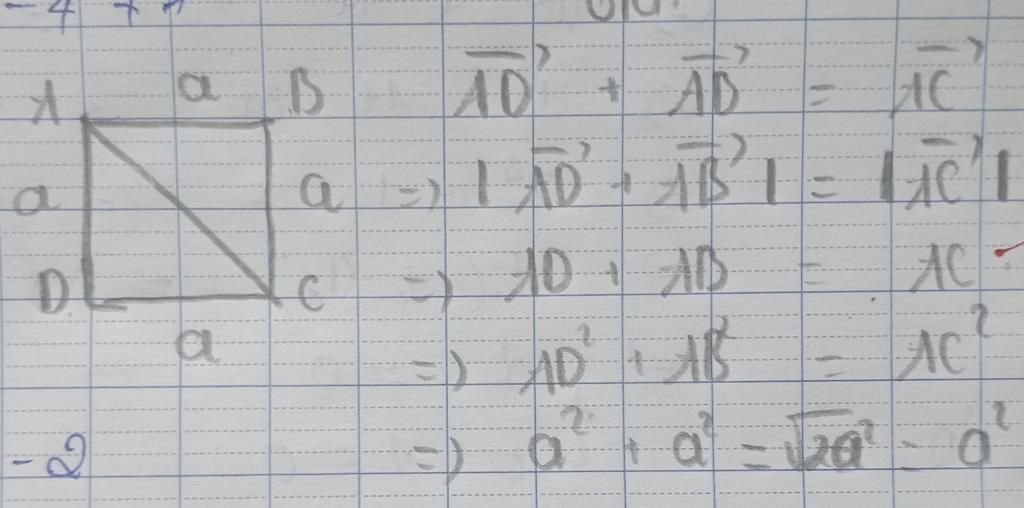 A a B
a a
D C
a
$\overrightarrow{AD} + \overrightarrow{AB} = \overrightarrow{AC}$
$\Rightarrow |\overrightarrow{AD} + \overrightarrow{AB}| = |\overrightarrow{AC}|$
$\Rightarrow AD + AB = AC$
$\Rightarrow AD^2 + AB^2 = AC^2$
-2 $\Rightarrow a^2 + a^2 = \sqrt{2a^2} = a^2$